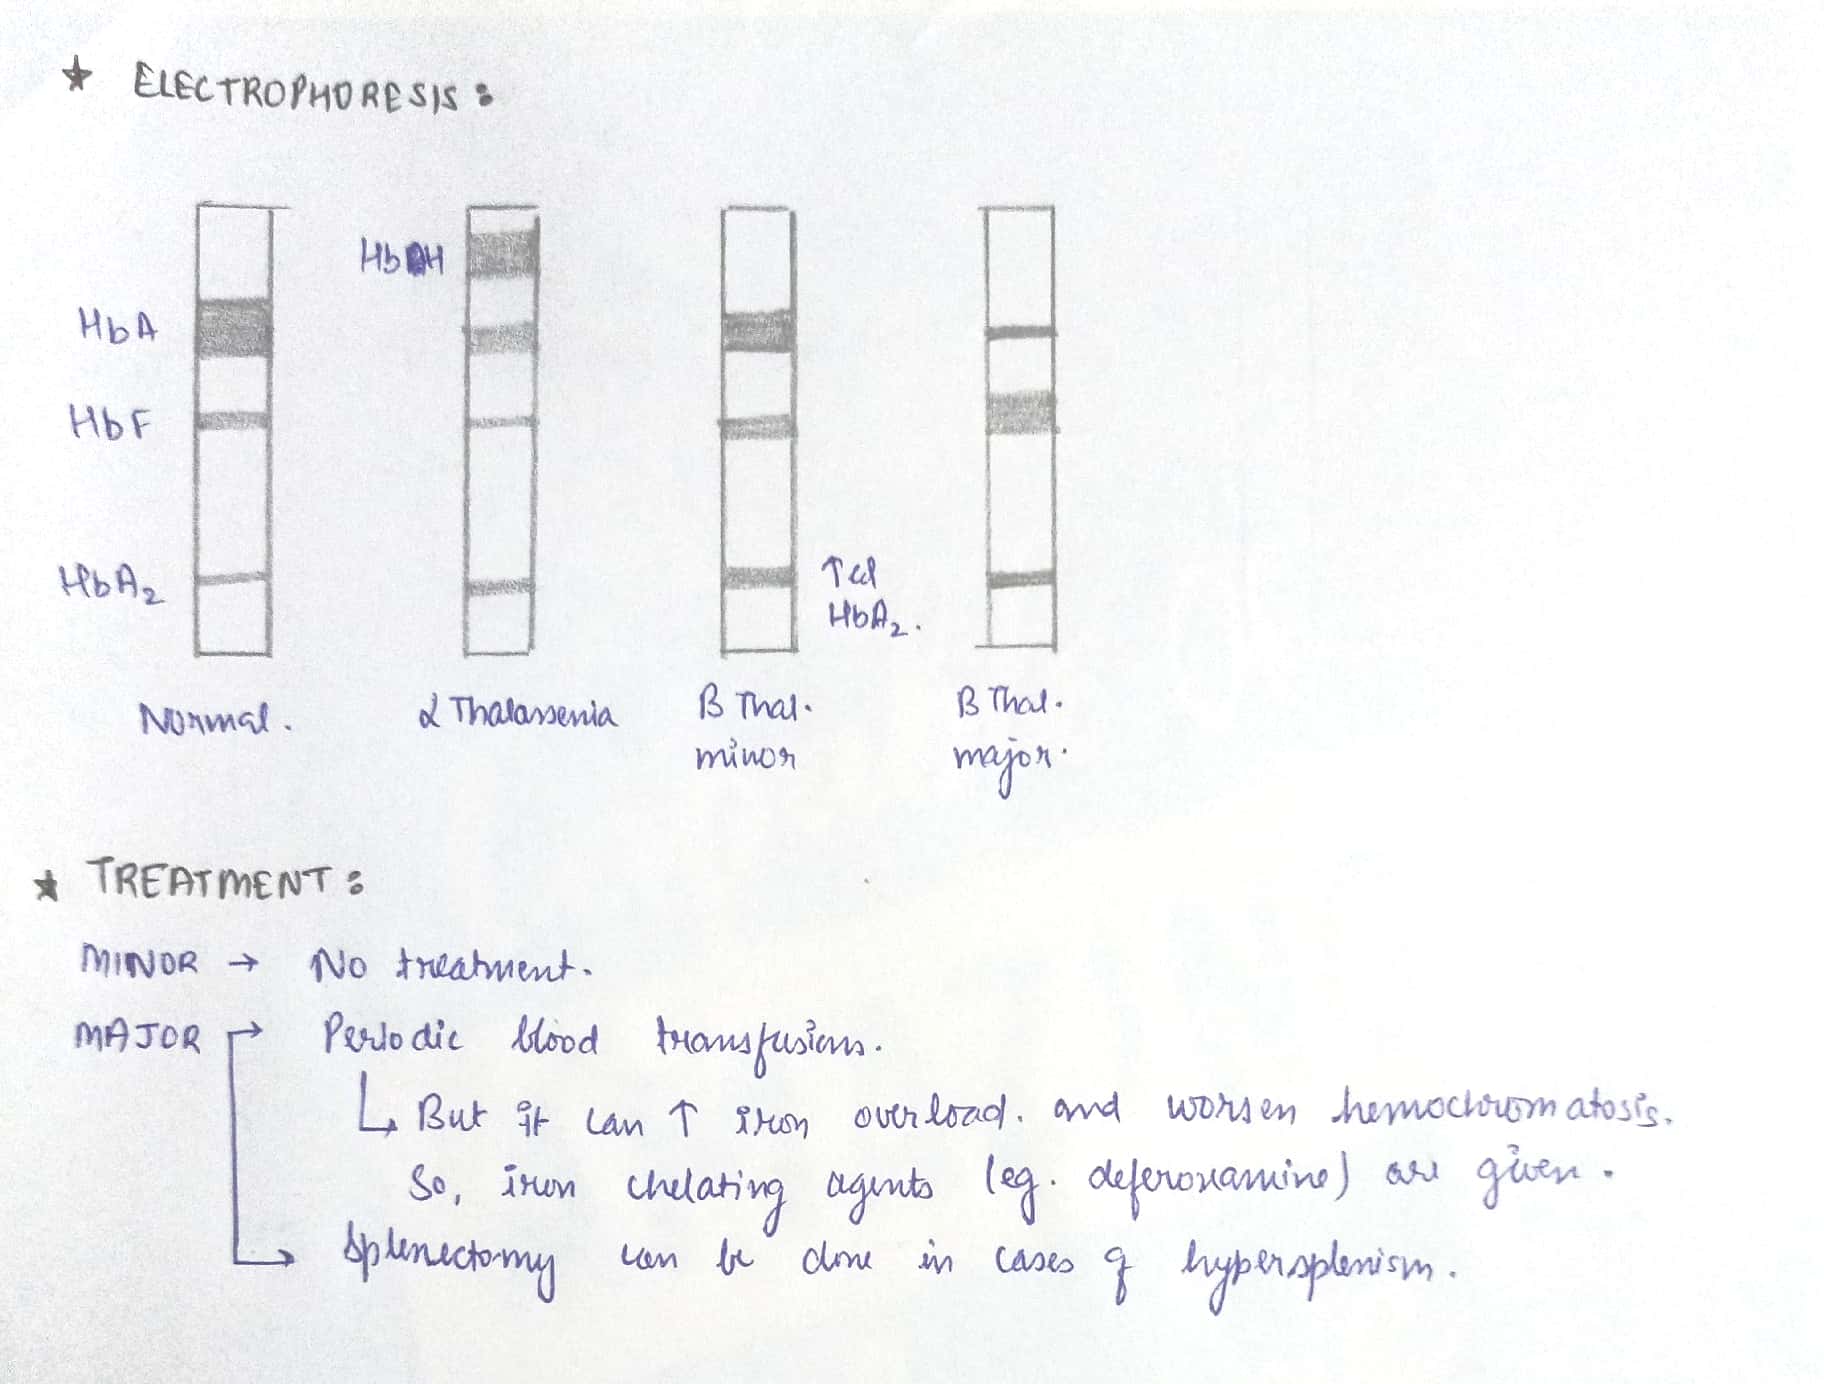 ★ ELECTROPHORESIS :
HbH
HbA
HbF
HbA₂
↑ed
HbA₂.
Normal.
α Thalassemia
β Thal.
minor
β Thal.
major.
★ TREATMENT :
MINOR → No treatment.
MAJOR → Periodic blood transfusions.
↳ But it can ↑ iron overload. and worsen hemochromatosis.
So, iron chelating agents (eg. deferoxamine) are given.
↳ Splenectomy can be done in cases of hypersplenism.